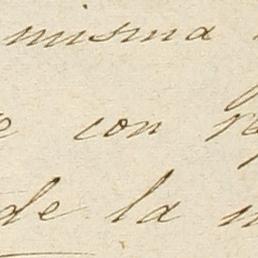 misma
con
de la